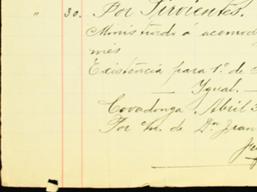 " 30. Por Sirvientes.
Ministrado a acomod
mes
Existencia para 1º. de
Igual.
Covadonga Abril 3
Por